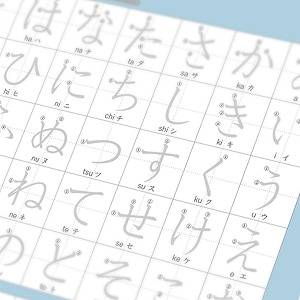 は な た さ か
ha ハ na ナ ta タ sa サ ka カ
ひ に ち し き い
hi ヒ ni ニ chi チ shi シ ki キ i イ
ぬ つ す く う
nu ヌ tsu ツ su ス ku ク u ウ
ね て せ け え
ne ネ te テ se セ ke ケ e エ
の と そ